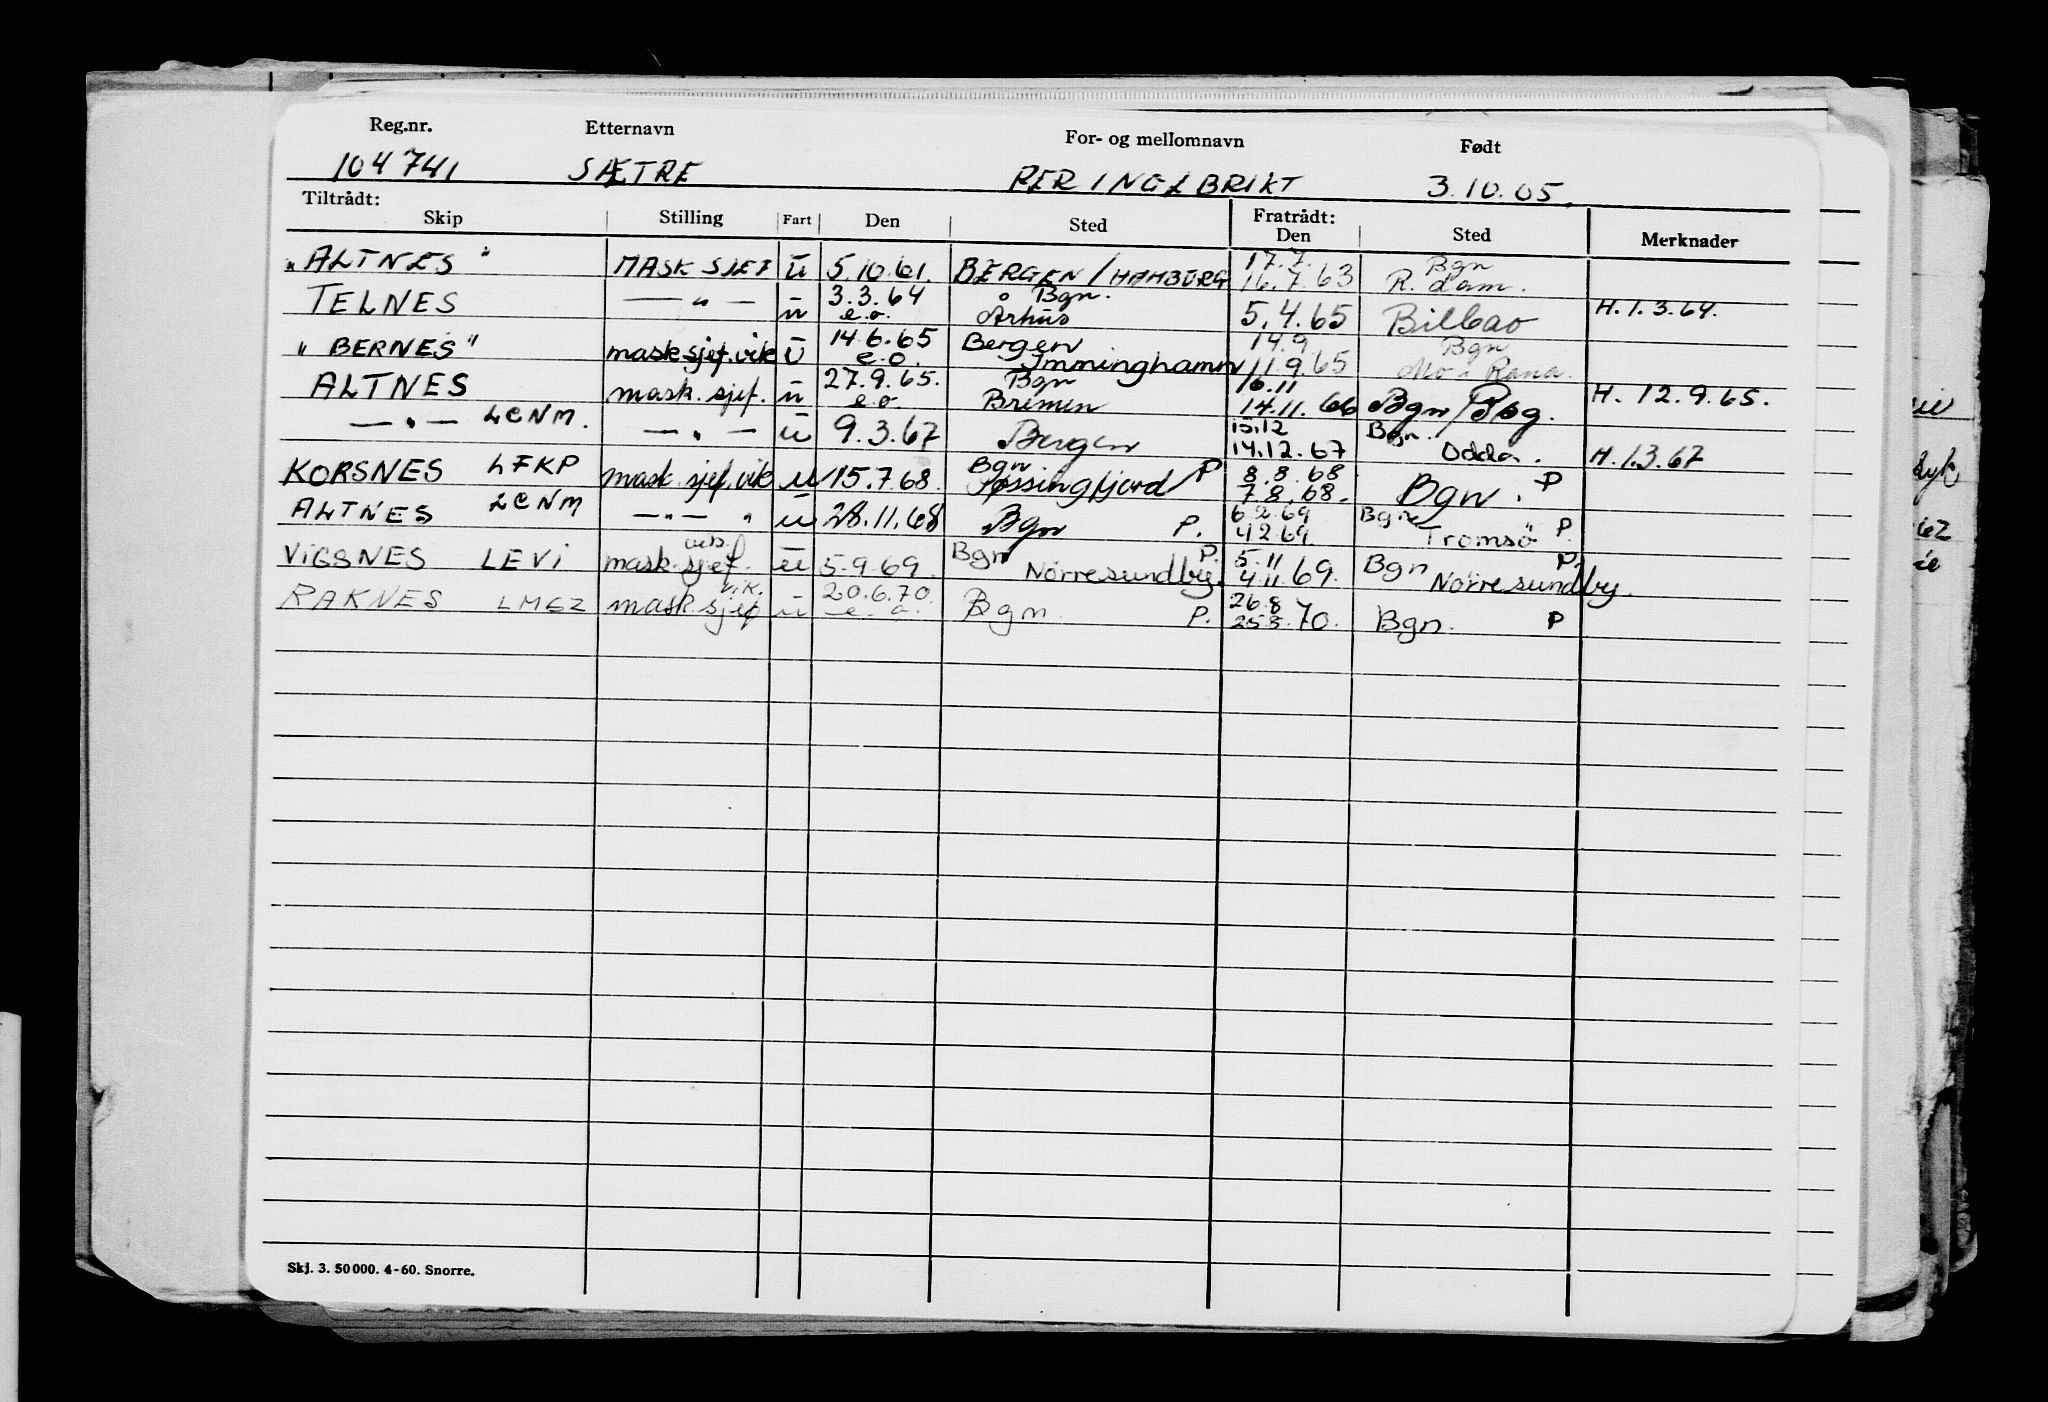 Reg.nr. Etternavn For- og mellomnavn Født
104741 SÆTRE PER INGEBRIKT 3.10.05.
Tiltrådt: Fratrådt:
Skip Stilling Fart Den Sted Den Sted Merknader
"ALTNES" MASK SJEF u 5.10.61. BERGEN/HAMBURG 17.7. 16.7.63 Bgn R.dam.
TELNES —"— u 3.3.64 e.o. Bgn. Århus 5.4.65 Bilbao H.1.3.64.
"BERNES" mask.sjef.vik u 14.6.65 e.o. Bergen Imminghamn 14.9 11.9.65 Bgn Mo i Rana.
ALTNES mask. sjef. u 27.9.65. e.o. Bgn Bremen 16.11 14.11.66 Bgn/ H. 12.9.65.
—"— LCNM. —"— u 9.3.67 Bergen 15.12 14.12.67 Bgn. Odda. H.1.3.67
KORSNES LFKP mask. sjef. vik u 15.7.68. Bgn Jøssingfjord P 8.8.68 7.8.68. Bgn. P
ALTNES LCNM —"— " u 28.11.68 Bgn P. 6.2.69 4.2.69 Bgn Tromsö P.
VIGSNES LEVI mask.sjef. u 5.9.69. Bgn P. Nörresundby. 5.11 4.11.69. Bgn P. Nörresundby.
RAKNES LMGZ mask sjef vik. u 20.6.70. e.o. Bgn. P. 26.8 25.8.70. Bgn. P
Skj. 3. 50000. 4-60. Snorre.